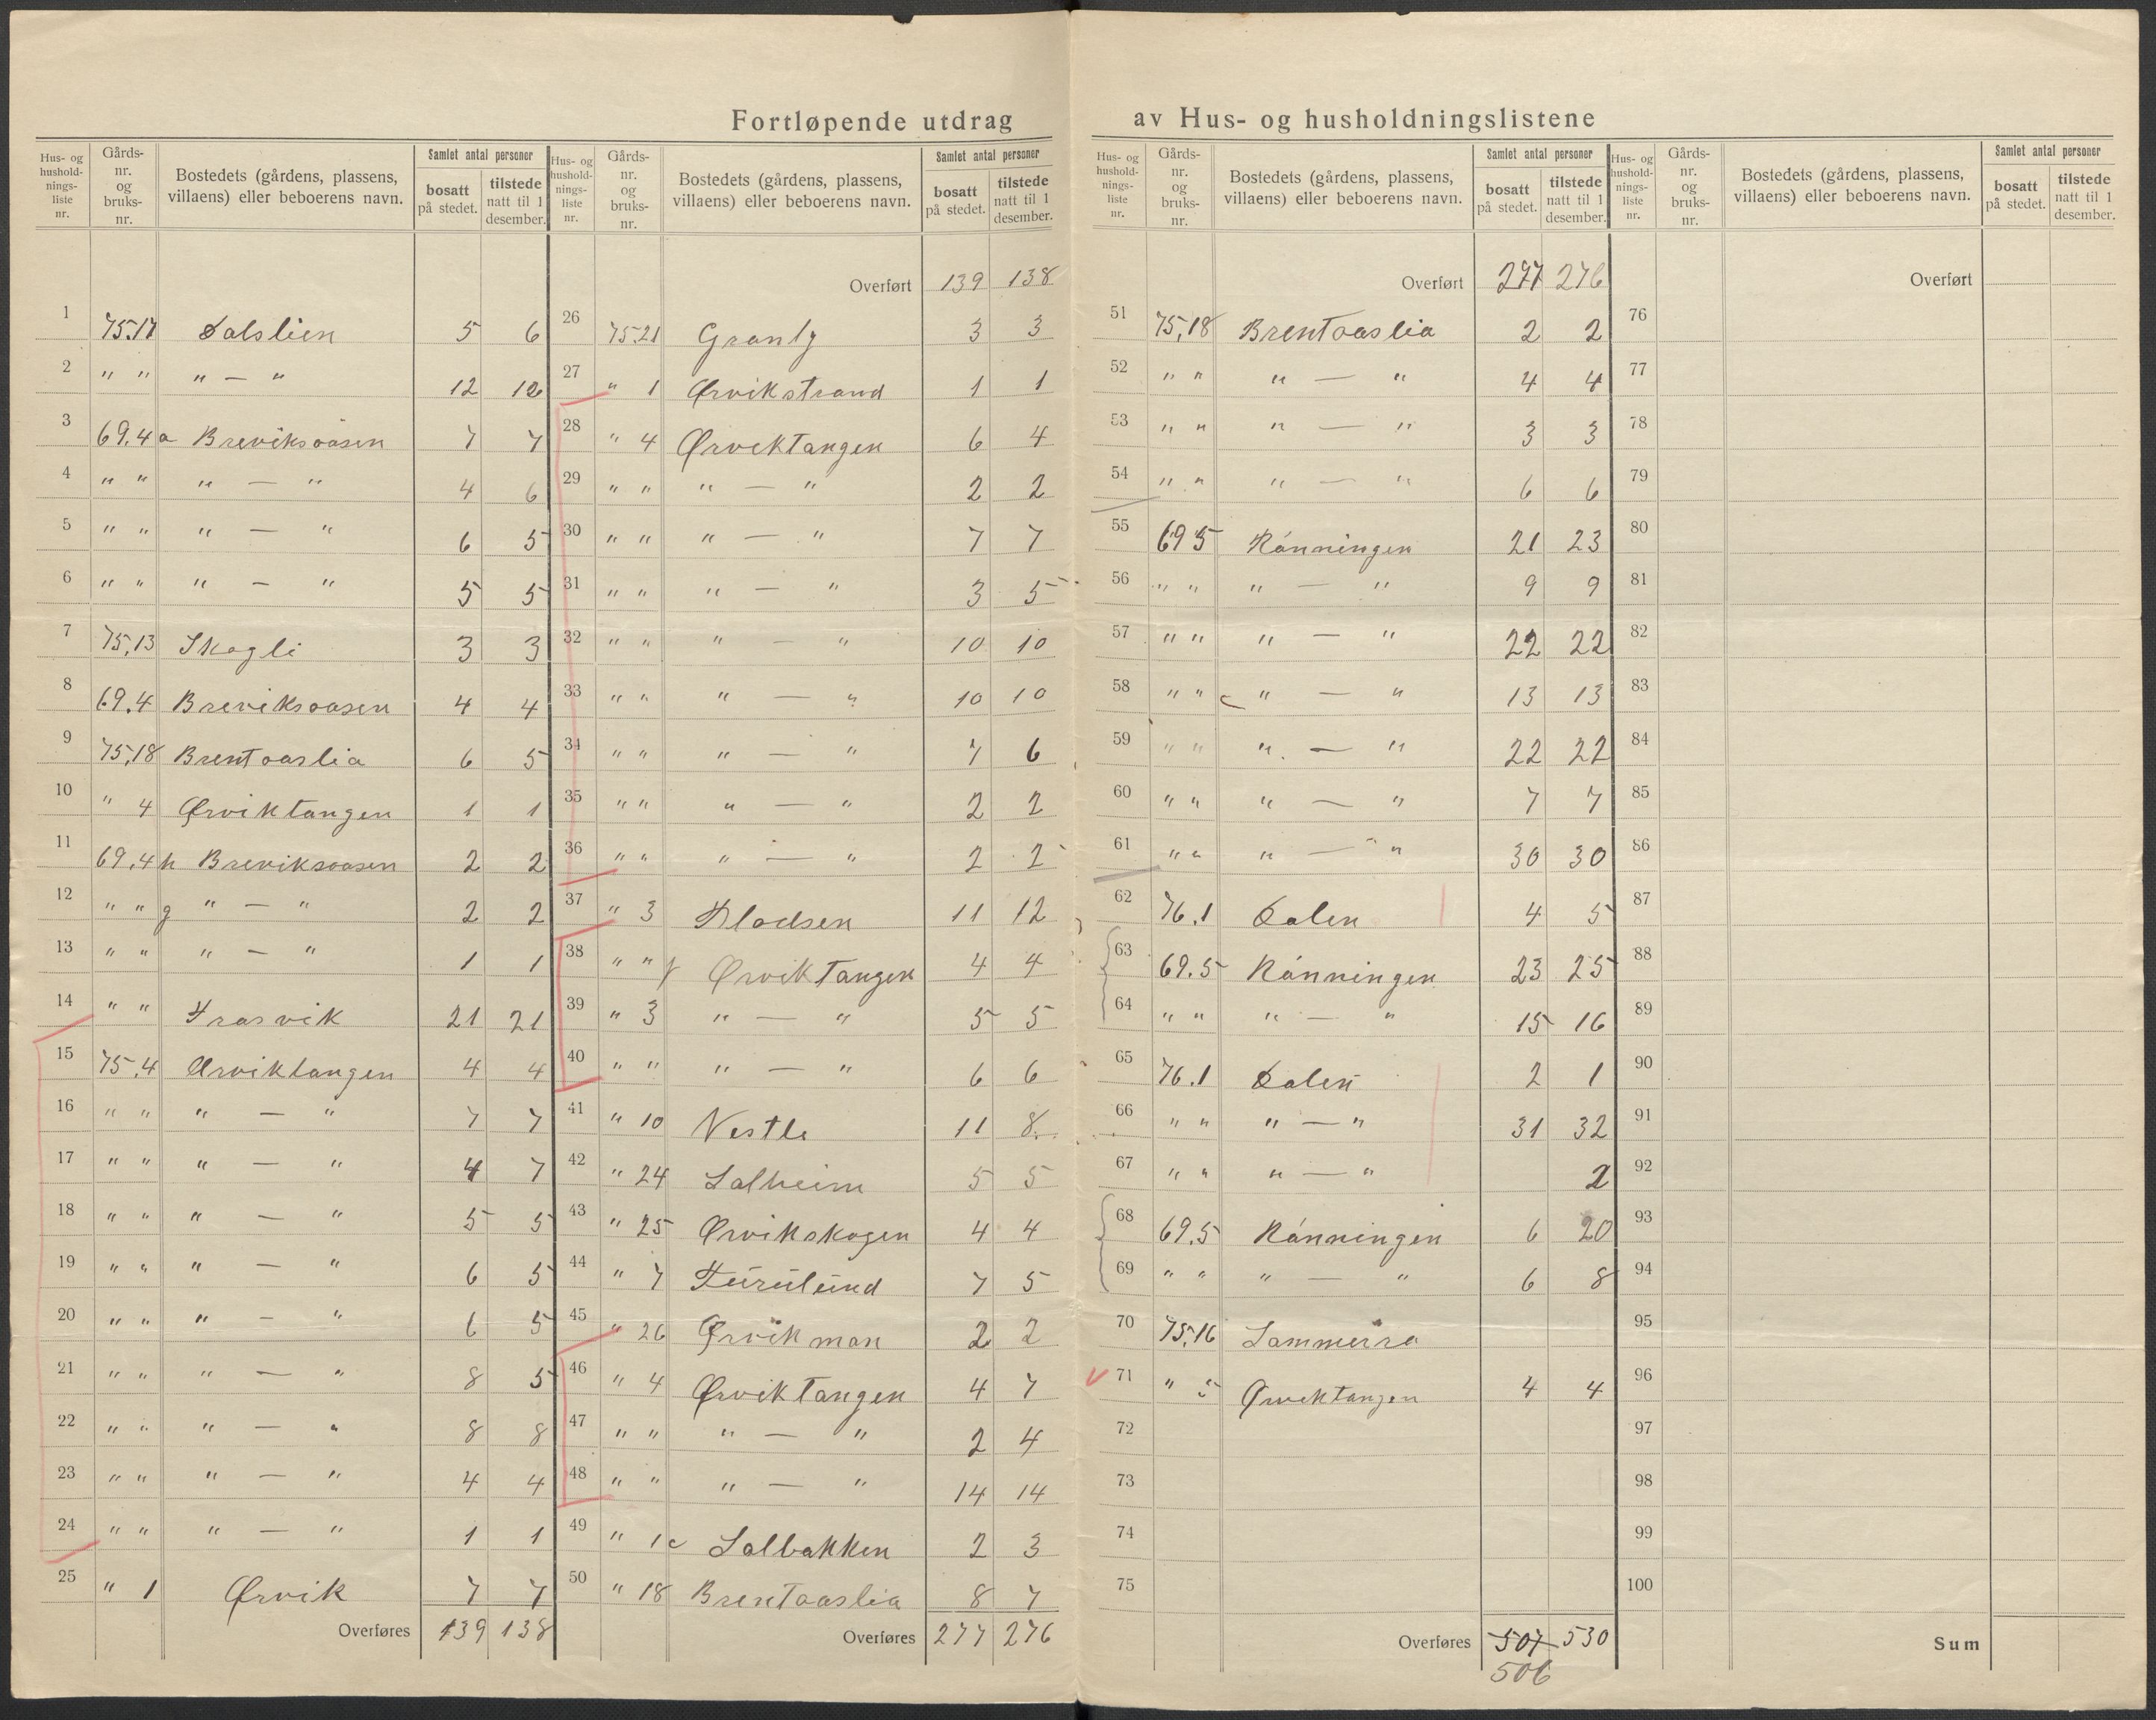 Fortløpende utdrag av Hus- og husholdningslistene
Hus- og hushold-nings-liste nr. Gårds-nr. og bruks-nr. Bostedets (gårdens, plassens, villaens) eller beboerens navn. Samlet antal personer bosatt på stedet. tilstede natt til 1 desember.
1 75.17 Dalslien 5 6
2 " " " — " 12 12
3 69.4 a Breviksaasen 7 7
4 " " " — " 4 6
5 " " " — " 6 5
6 " " " — " 5 5
7 75,13 Skogli 3 3
8 69.4 Breviksaasen 4 4
9 75,18 Brentaaslia 6 5
10 " 4 Ørviktangen 1 1
11 69.4 h Breviksaasen 2 2
12 " " g " — " 2 2
13 " " " — " 1 1
14 " " Trosvik 21 21
15 75.4 Ørviktangen 4 4
16 " " " — " 7 7
17 " " " — " 4 7
18 " " " — " 5 5
19 " " " — " 6 5
20 " " " — " 6 5
21 " " " — " 8 5
22 " " " — " 8 8
23 " " " — " 4 4
24 " " " — " 1 1
25 " 1 Ørvik 7 7
Overføres 139 138
Hus- og hushold-nings-liste nr. Gårds-nr. og bruks-nr. Bostedets (gårdens, plassens, villaens) eller beboerens navn. Samlet antal personer bosatt på stedet. tilstede natt til 1 desember.
Overført 139 138
26 75.21 Granly 3 3
27 " 1 Ørvikstrand 1 1
28 " 4 Ørviktangen 6 4
29 " " " — " 2 2
30 " " " — " 7 7
31 " " " — " 3 5
32 " " " — " 10 10
33 " " " — " 10 10
34 " " " — " 7 6
35 " " " — " 2 2
36 " " " — " 2 2
37 " 3 11 12
38 " " Ørviktangen 4 4
39 " 3 " — " 5 5
40 " " " — " 6 6
41 " 10 Vestli 11 8
42 " 24 Solheim 5 5
43 " 25 Ørvikskogen 4 4
44 " 7 Furulund 7 5
45 " 26 Ørvik mon 2 2
46 " 4 Ørviktangen 4 7
47 " " " — " 2 4
48 " " " — " 14 14
49 " 1c Solbakken 2 3
50 " 18 Brentaaslia 8 7
Overføres 277 276
Hus- og hushold-nings-liste nr. Gårds-nr. og bruks-nr. Bostedets (gårdens, plassens, villaens) eller beboerens navn. Samlet antal personer bosatt på stedet. tilstede natt til 1 desember.
Overført 277 276
51 75,18 Brentaaslia 2 2
52 " " " — " 4 4
53 " " " — " 3 3
54 " " " — " 6 6
55 69 5 Rønningen 21 23
56 " " " — " 9 9
57 " " " — " 22 22
58 " " " — " 13 13
59 " " " — " 22 22
60 " " " — " 7 7
61 " " " — " 30 30
62 76.1 Dalen 4 5
63 69.5 Rønningen 23 25
64 " " " — " 15 16
65 76.1 Dalen 2 1
66 " " " — " 31 32
67 " " " — " 2
68 69.5 Rønningen 6 20
69 " " " — " 6 8
70 75,16
71 " 5 Ørviktangen 4 4
72
73
74
75
Overføres 507 530
506
Hus- og hushold-nings-liste nr. Gårds-nr. og bruks-nr. Bostedets (gårdens, plassens, villaens) eller beboerens navn. Samlet antal personer bosatt på stedet. tilstede natt til 1 desember.
Overført
76
77
78
79
80
81
82
83
84
85
86
87
88
89
90
91
92
93
94
95
96
97
98
99
100
Sum